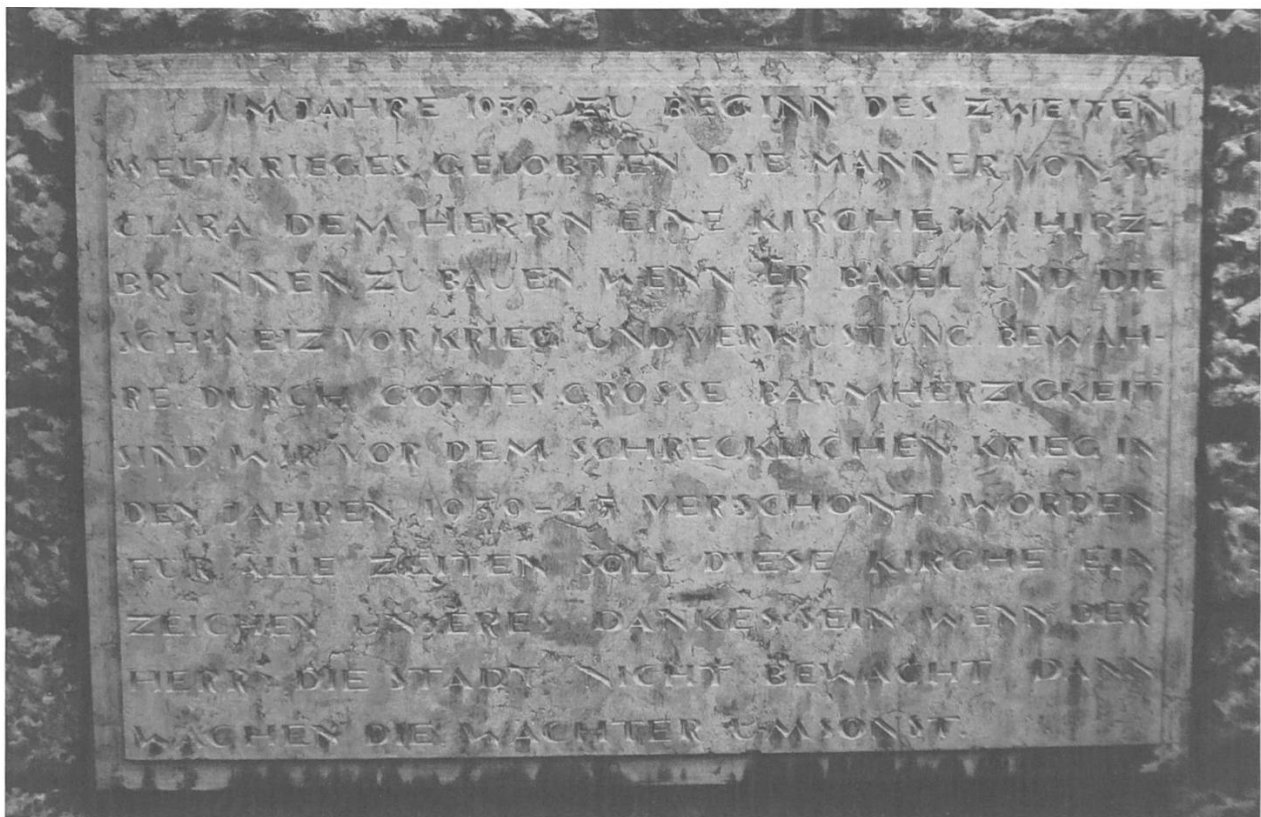 IM JAHRE 1939 ZU BEGINN DES ZWEITEN
WELTKRIEGES GELOBTEN DIE MÄNNER VON ST.
CLARA DEM HERRN EINE KIRCHE IM HIRZ-
BRUNNEN ZU BAUEN WENN ER BASEL UND DIE
SCHWEIZ VOR KRIEG UND VERWÜSTUNG BEWAH-
RE. DURCH GOTTES GROSSE BARMHERZIGKEIT
SIND WIR VOR DEM SCHRECKLICHEN KRIEG IN
DEN JAHREN 1939-45 VERSCHONT WORDEN.
FÜR ALLE ZEITEN SOLL DIESE KIRCHE EIN
ZEICHEN UNSERES DANKES SEIN WENN DER
HERR DIE STADT NICHT BEWACHT DANN
WACHEN DIE WÄCHTER UMSONST.